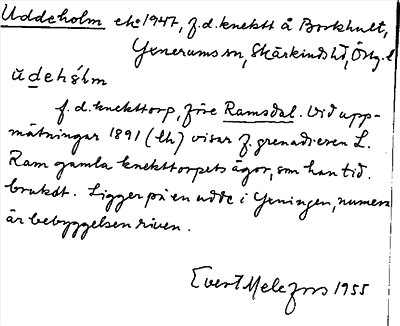 Uddeholm ek 1947, f.d. knektt å Borkhult,
Yxnerums sn, Skärkinds hd, Östg. l
ŭdehålm
f. d. knekttorp, före Ramsdal. Vid upp-
mätningar 1891 (lh) visar f. grenadieren L.
Ram gamla knekttorpets ägor, som han tid.
brukat. Ligger på en udde i Yxningen, numera
är bebyggelsen riven.
Evert Melefors 1955